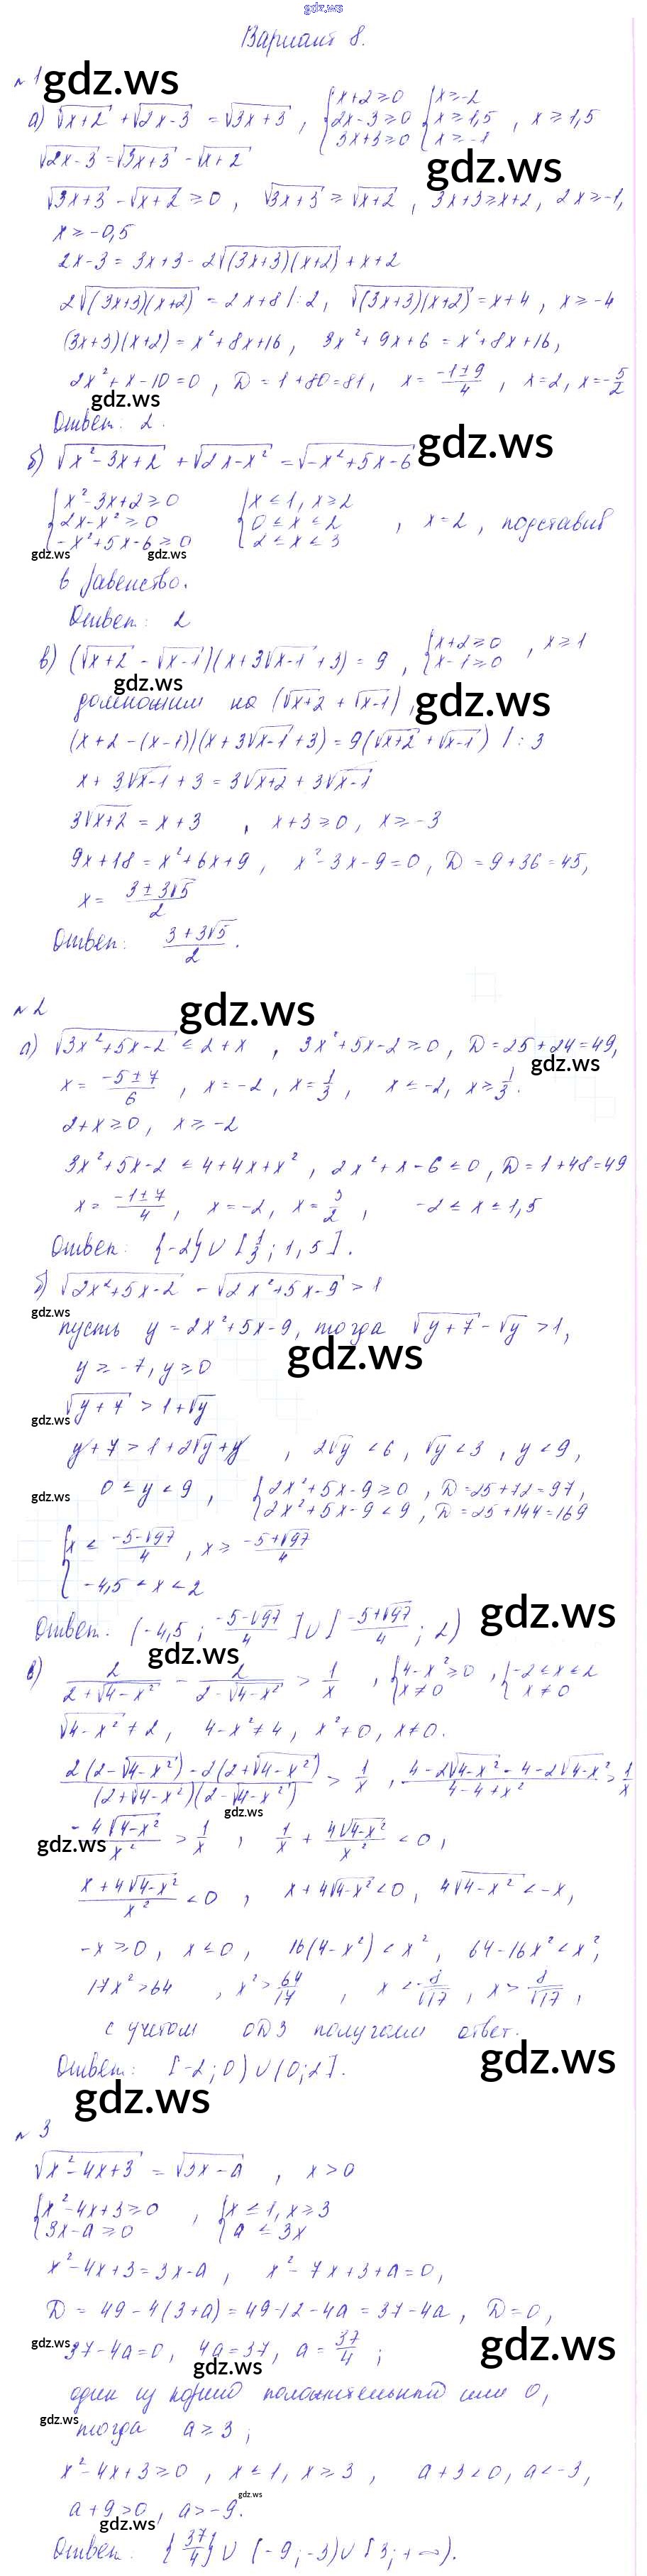 gdz.ws
Вариант 8.
№ 1
gdz.ws
а) √(x+2) + √(2x-3) = √(3x+3) , { x+2≥0 2x-3≥0 3x+3≥0 { x≥-2 x≥1,5 x≥-1 , x≥1,5
√(2x-3) = √(3x+3) - √(x+2)
gdz.ws
√(3x+3) - √(x+2) ≥ 0 , √(3x+3) ≥ √(x+2) , 3x+3≥x+2, 2x≥-1,
x≥-0,5
2x-3 = 3x+3 - 2√((3x+3)(x+2)) + x+2
2√((3x+3)(x+2)) = 2x+8 |:2, √((3x+3)(x+2)) = x+4 , x≥-4
(3x+3)(x+2) = x²+8x+16, 3x²+9x+6 = x²+8x+16,
2x²+x-10=0 , D=1+80=81, x= (-1±9)/4 , x=2, x=-5/2
gdz.ws
Ответ: 2.
б) √(x²-3x+2) + √(2x-x²) = √(-x²+5x-6)
gdz.ws
{ x²-3x+2≥0 2x-x²≥0 -x²+5x-6≥0 { x≤1, x≥2 0≤x≤2 2≤x≤3 , x=2, подставив
gdz.ws gdz.ws
в равенство.
Ответ: 2
в) (√(x+2) - √(x-1))(x+3√(x-1)+3) = 9 , { x+2≥0 x-1≥0 , x≥1
gdz.ws
домножим на (√(x+2) + √(x-1)),
gdz.ws
(x+2-(x-1))(x+3√(x-1)+3) = 9(√(x+2) + √(x-1)) |:3
x+3√(x-1)+3 = 3√(x+2) + 3√(x-1)
3√(x+2) = x+3 , x+3≥0, x≥-3
9x+18 = x²+6x+9 , x²-3x-9=0, D=9+36=45,
x= (3±3√5)/2
Ответ: (3+3√5)/2.
№ 2
gdz.ws
а) √(3x²+5x-2) ≤ 2+x , 3x²+5x-2≥0, D=25+24=49,
gdz.ws
x= (-5±7)/6 , x=-2, x=1/3 , x≤-2, x≥1/3.
2+x≥0, x≥-2
3x²+5x-2 ≤ 4+4x+x² , 2x²+x-6≤0, D=1+48=49
x= (-1±7)/4 , x=-2, x=3/2 , -2≤x≤1,5
Ответ: {-2}∪[1/3; 1,5].
б) √(2x²+5x-2) - √(2x²+5x-9) > 1
gdz.ws
пусть y=2x²+5x-9, тогда √(y+7) - √y > 1,
gdz.ws
y≥-7, y≥0
√(y+7) > 1+√y
gdz.ws
y+7 > 1+2√y+y , 2√y<6, √y<3 , y<9,
gdz.ws
0≤y<9 , { 2x²+5x-9≥0 , D=25+72=97, 2x²+5x-9<9 , D=25+144=169
{ x≤ (-5-√97)/4 , x≥ (-5+√97)/4 -4,5<x<2
gdz.ws
Ответ: (-4,5; (-5-√97)/4]∪[(-5+√97)/4; 2)
gdz.ws
в) 2/(2+√(4-x²)) - 2/(2-√(4-x²)) > 1/x , { 4-x²≥0 x≠0 , { -2≤x≤2 x≠0
√(4-x²) ≠ 2, 4-x²≠4, x²≠0, x≠0.
(2(2-√(4-x²)) - 2(2+√(4-x²)))/((2+√(4-x²))(2-√(4-x²))) > 1/x , (4-2√(4-x²)-4-2√(4-x²))/(4-4+x²) > 1/x
gdz.ws
gdz.ws
-4√(4-x²)/x² > 1/x , 1/x + 4√(4-x²)/x² < 0,
(x+4√(4-x²))/x² < 0 , x+4√(4-x²)<0, 4√(4-x²) < -x,
-x≥0, x≤0, 16(4-x²) < x², 64-16x²<x²,
17x²>64 , x²>64/17 , x<-8/√17 , x>8/√17,
с учетом ОДЗ получаем ответ.
gdz.ws
Ответ: [-2;0)∪(0;2].
gdz.ws
№ 3
√(x²-4x+3) = √(3x-a) , x>0
{ x²-4x+3≥0 3x-a≥0 , { x≤1, x≥3 a≤3x
x²-4x+3=3x-a , x²-7x+3+a=0,
D = 49-4(3+a) = 49-12-4a = 37-4a, D=0,
gdz.ws
37-4a=0, 4a=37, a=37/4 ;
gdz.ws
gdz.ws
один из корней положительный или 0,
gdz.ws
тогда a≥3 ;
x²-4x+3≥0 , x≤1, x≥3 , a+3<0, a<-3,
gdz.ws
a+9>0, a>-9.
gdz.ws
Ответ: {37/4}∪(-9;-3)∪[3;+∞).